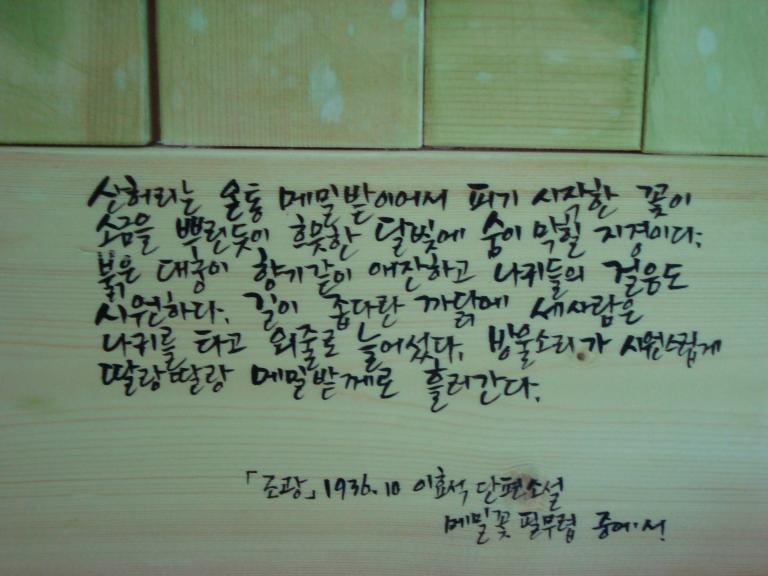 산허리는 온통 메밀밭이어서 피기 시작한 꽃이
소금을 뿌린듯이 흐뭇한 달빛에 숨이 막힐 지경이다.
붉은 대궁이 향기같이 애잔하고 나귀들의 걸음도
시원하다. 길이 좁다란 까닭에 세사람은
나귀를 타고 외줄로 늘어섰다. 방울소리가 시원스럽게
딸랑딸랑 메밀밭께로 흘러간다.
「조광」 1936.10 이효석 단편소설
메밀꽃 필무렵 중에서